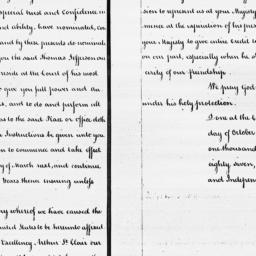 special trust and confidence in
and ability, have nominated, con
and by these presents do nominate
you the said Thomas Jefferson our
reside at the Court of his most
to give you full power and au
there, and to do and perform all
as to the said Place or office doth
Instructions be given unto you
on to commence and take effect
day of March next, and continue
Years thence ensuing unless
whereof we have caused the
United States to be hereunto affixed.
Excellency Arthur St. Clair our
sion to represent us at your Majesty
mence at the expiration of his pres
your Majesty to give entire credit to
on our part, especially when he sh
cerity of our friendship.
We pray God
under his holy protection.
Done at the C
day of October
one thousand
eighty seven,
and Indepen